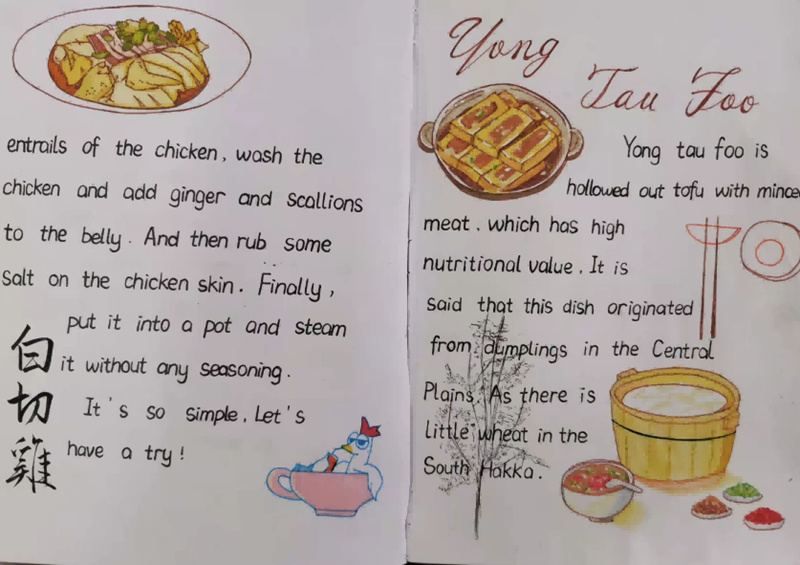 entrails of the chicken, wash the
chicken and add ginger and scallions
to the belly. And then rub some
salt on the chicken skin. Finally,
put it into a pot and steam
it without any seasoning.
It's so simple. Let's
have a try!
白
切
雞
Yong
Tau Foo
Yong tau foo is
hollowed out tofu with mince
meat. which has high
nutritional value. It is
said that this dish originated
from dumplings in the Central
Plains. As there is
little wheat in the
South Hakka.